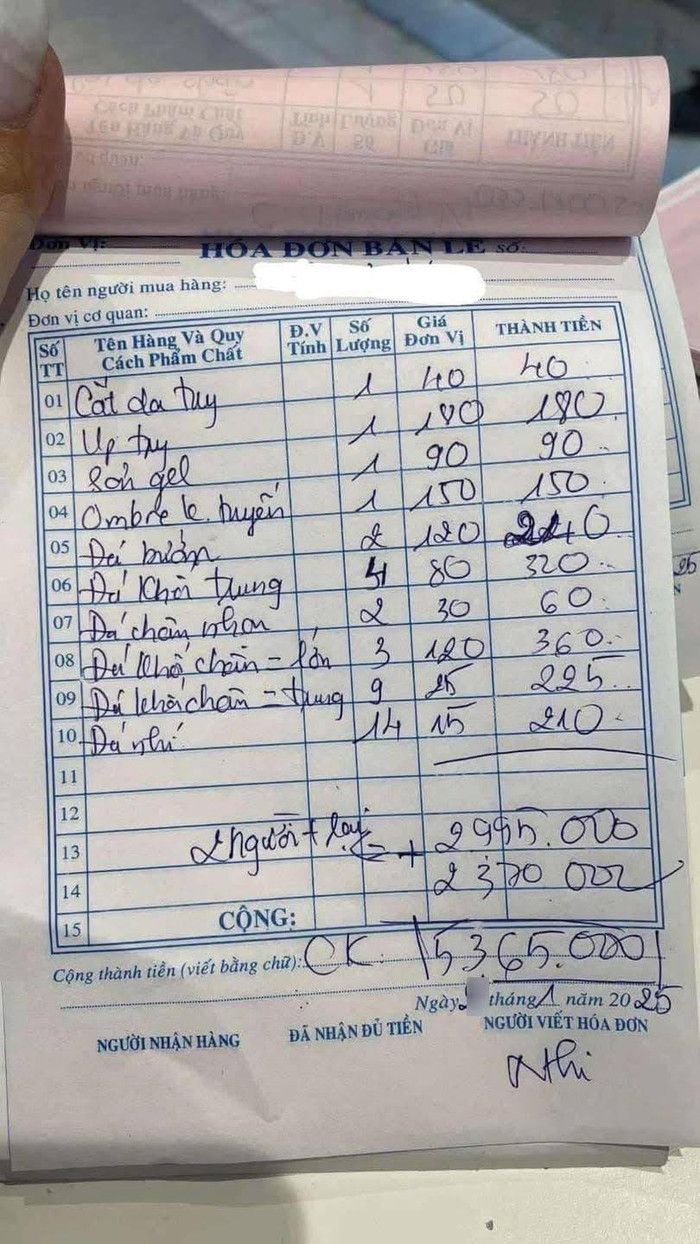 Đơn Vị:
HÓA ĐƠN BÁN LẺ SỐ:
Họ tên người mua hàng:
Đơn vị cơ quan:
Số TT Tên Hàng Và Quy Cách Phẩm Chất Đ.V Tính Số Lượng Giá Đơn Vị THÀNH TIỀN
01 Cắt da tay 1 40 40
02 Up tay 1 180 180
03 Sơn gel 1 90 90
04 Ombre k. tuyến 1 150 150
05 Đá bướm 2 120 240
06 Đá khối trung 4 80 320
07 Đá chân nhọn 2 30 60
08 Đá khối, chân - lớn 3 120 360
09 Đá khối chân - trung 9 25 225
10 Đá nhí 14 15 210
11
12
13 2 người + lại = + 2 995.000
14 2 370 000
15 CỘNG:
Cộng thành tiền (viết bằng chữ): CK. 5365.000
Ngày tháng 1 năm 2025
NGƯỜI NHẬN HÀNG ĐÃ NHẬN ĐỦ TIỀN NGƯỜI VIẾT HÓA ĐƠN
Nhi